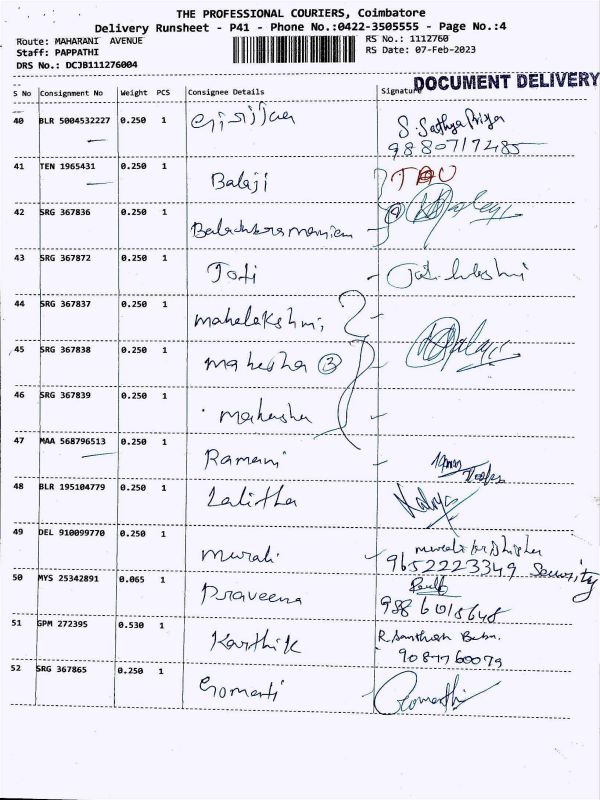 THE PROFESSIONAL COURIERS, Coimbatore
Delivery Runsheet - P41 - Phone No.:0422-3505555 - Page No.:4
Route: MAHARANI AVENUE
RS No.: 1112760
Staff: PAPPATHI
RS Date: 07-Feb-2023
DRS No.: DCJB111276004
DOCUMENT DELIVERY
S No Consignment No Weight PCS Consignee Details Signature
40 BLR 5004532227 0.250 1 S. Sathya Priya
9880717485
41 TEN 1965431 0.250 1 Balaji
42 SRG 367836 0.250 1
43 SRG 367872 0.250 1 Joti
44 SRG 367837 0.250 1 mahalakshmi
45 SRG 367838 0.250 1 mahesha 3
46 SRG 367839 0.250 1 mahesha
47 MAA 568796513 0.250 1 Ramani
48 BLR 195104779 0.250 1 Lalitha
49 DEL 910099770 0.250 1 murali
9652223349 Security
50 MYS 25342891 0.065 1 Praveena
9886018648
51 GPM 272395 0.530 1 Karthik R. Santhosh Babu.
9087760079
52 SRG 367865 0.250 1 Gomathi Gomathi